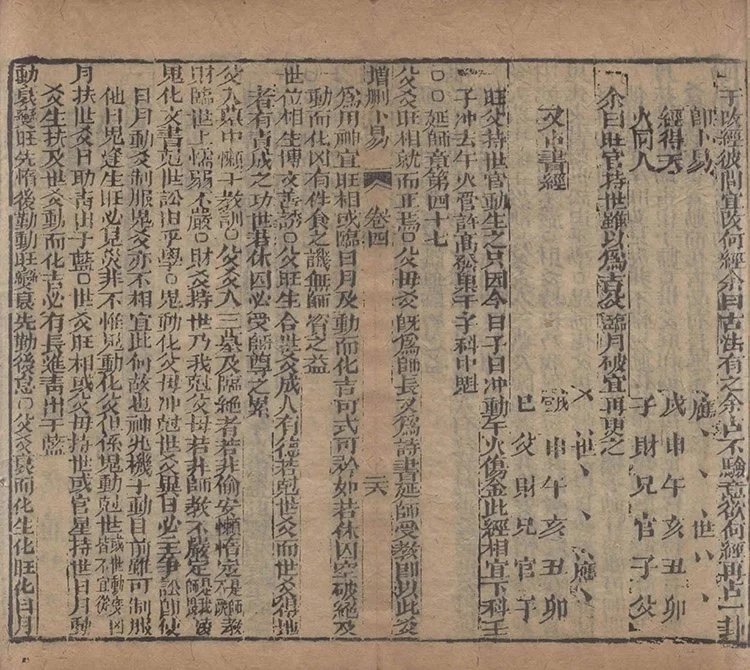 于改經彼問宜改何經余曰古法有之余占不驗意欲何經再占一卦
師卜易
經得天
火同人
應、、世、、
戌申午亥丑卯
子財兄官子父
余曰旺官持世難以為吉父臨月破宜再更之
又占書經
世、、應、
戌申午亥丑卯
巳父財兄官子
旺父持世官動生之只因今日子日冲動午火傷金此經相宜下科壬
子冲去午火官許高發果午子科中魁
〇〇延師章第四十七
父爻旺相就而正焉〇父母爻既為師長又為詩書延師受教即以此爻
增刪卜易 卷四 二六
為用神宜旺相或臨日月及動而化吉可式可矜如若休囚空破絕及
動而化凶有伴食之譏無師資之益
世位相生傅文善誘〇父旺生合世爻成人有德若剋世爻而世爻得地
者有責成之功世若休囚必受師尊之累
父入墓中懶于教訓〇父爻入三墓及臨絕者若非偷安懶惰定是師教
財臨世上懦弱不嚴〇財爻持世乃我剋父母若非師教不嚴定是我
鬼化文書剋世訟由乎學〇鬼動化父母冲剋世爻異日必主爭訟師使
日月動爻制服鬼爻亦不相宜此何故也神兆機于動目前雖可制服
他日鬼逢生旺必見災非不惟鬼動化父但係鬼動剋世或世動變鬼皆不宜後凶
月扶世爻日助青出于藍〇世爻旺相或父母持世或官星持世日月動
爻生扶及世爻動而化吉必有長進青出于藍
動衰變旺先惰後勤動旺變衰先勤後怠〇父爻衰而化生化旺化日月